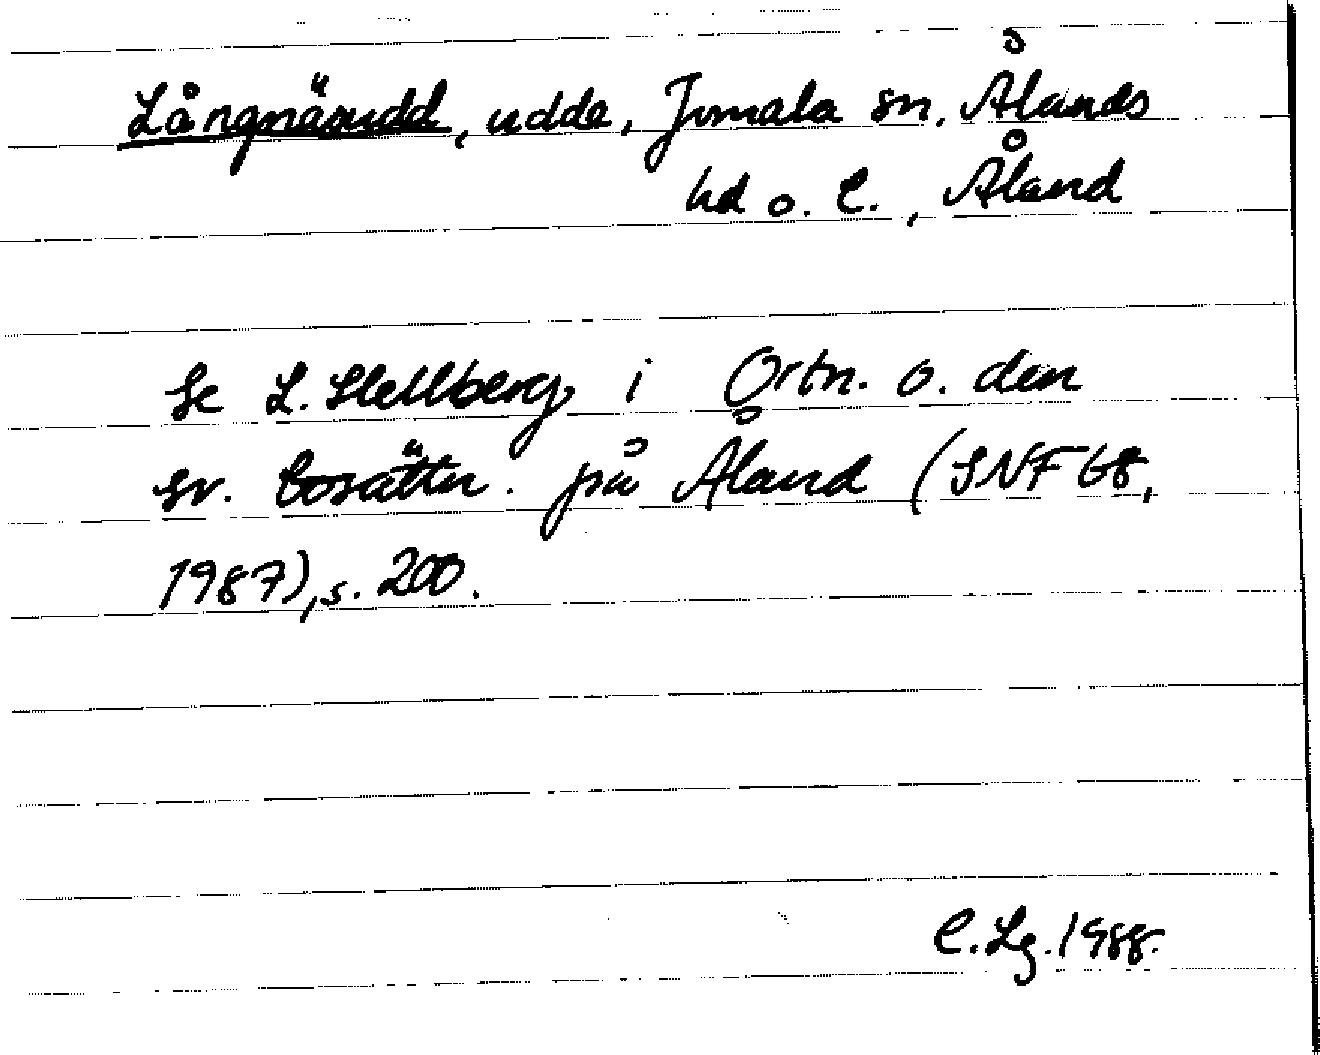 Långnäsudd, udde, Jomala sn, Ålands
hd o. l., Åland
Se L. Hellberg i Ortn. o. den
sv. bosättn. på Åland (SNF 68,
1987), s. 200.
C. Lg. 1988.